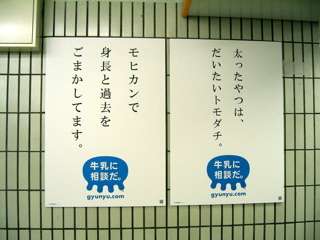 モヒカンで
身長と過去を
ごまかしてます。
牛乳に
相談だ。
gyunyu.com
太ったやつは、
だいたいトモダチ。
牛乳に
相談だ。
gyunyu.com